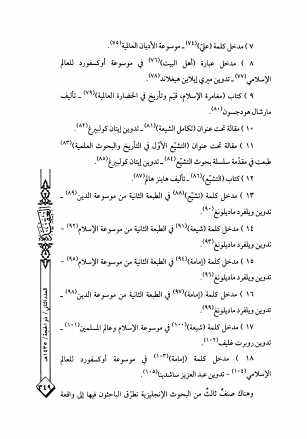 ٧ ) مدخل كلمة (عليّ)(٧٤) ـ موسوعة الأديان العالمية(٧٥).
٨ ) مدخل عبارة (أهل البيت)(٧٦) في موسوعة أوكسفورد للعالم
الإسلامي(٧٧) ـ تدوين ميري إيلاين هيغلاند(٧٨).
٩ ) كتاب (مغامرة الإسلام، قيَم وتأريخ في الحضارة العالمية)(٧٩) ـ تأليف
مارشال هودجسون(٨٠).
١٠ ) مقالة تحت عنوان (تكامل الشيعة)(٨١) ـ تدوين إيتان كولبيرغ(٨٢).
١١ ) مقالة تحت عنوان (التشيّع الأوّل في التأريخ والبحوث العلمية)(٨٣)
طبعت في مقدّمة سلسلة بحوث التشيّع(٨٤) ـ تدوين إيتان كولبيرغ(٨٥).
١٢ ) كتاب (التشيّع)(٨٦) ـ تأليف هاينز هالم(٨٧).
١٣ ) مدخل كلمة (تشيّع)(٨٨) في الطبعة الثانية من موسوعة الدين(٨٩) ـ
تدوين ويلفرد ماديلونغ(٩٠).
١٤ ) مدخل كلمة (شيعة)(٩١) في الطبعة الثانية من موسوعة الإسلام(٩٢) ـ
تدوين ويلفرد ماديلونغ(٩٣).
١٥ ) مدخل كلمة (إمامة)(٩٤) في الطبعة الثانية من موسوعة الإسلام(٩٥) ـ
تدوين ويلفرد ماديلونغ(٩٦).
١٦ ) مدخل كلمة (إمامة)(٩٧) في الطبعة الثانية من موسوعة الدين(٩٨) ـ
تدوين ويلفرد ماديلونغ(٩٩).
١٧ ) مدخل كلمة (شيعة)(١٠٠) في موسوعة الإسلام وعالم المسلمين(١٠١) ـ
تدوين روبرت غليف(١٠٢).
١٨ ) مدخل كلمة (إمامة)(١٠٣) في موسوعة أوكسفورد للعالم
الإسلامي(١٠٤) ـ تدوين عبد العزيز ساشدينا(١٠٥).
وهناك صنفٌ ثالثٌ من البحوث الإنجليزية تطرّق الباحثون فيها إلى واقعة
العقيدة
العدد الثاني / ذو الحجة / ١٤٣٥هـ
٣٤٩